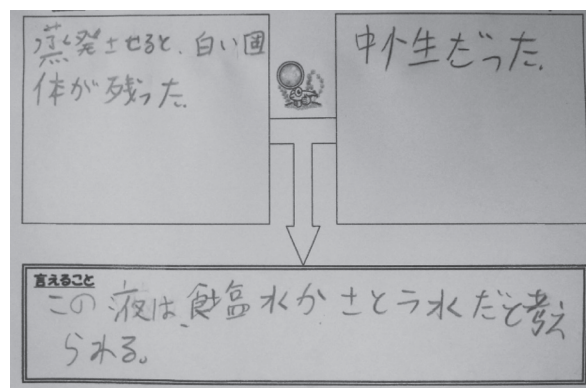 蒸発させると、白い固
体が残った。
中性だった。
言えること
この液は、食塩水かさとう水だと考え
られる。